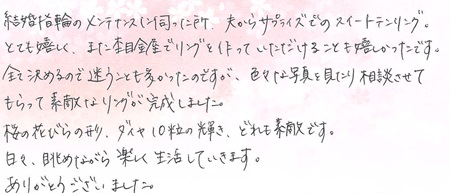 結婚指輪のメンテナンスに伺った所、夫からサプライズでのスイートテンリング。
とても嬉しく、また杢目金屋でリングを作っていただけることも嬉しかったです。
全て決めるので迷うことも多かったのですが、色々な写真を見たり相談させて
もらって素敵なリングが完成しました。
桜の花びらの形、ダイヤ10粒の輝き、どれも素敵です。
日々、眺めながら楽しく生活していきます。
ありがとうございました。